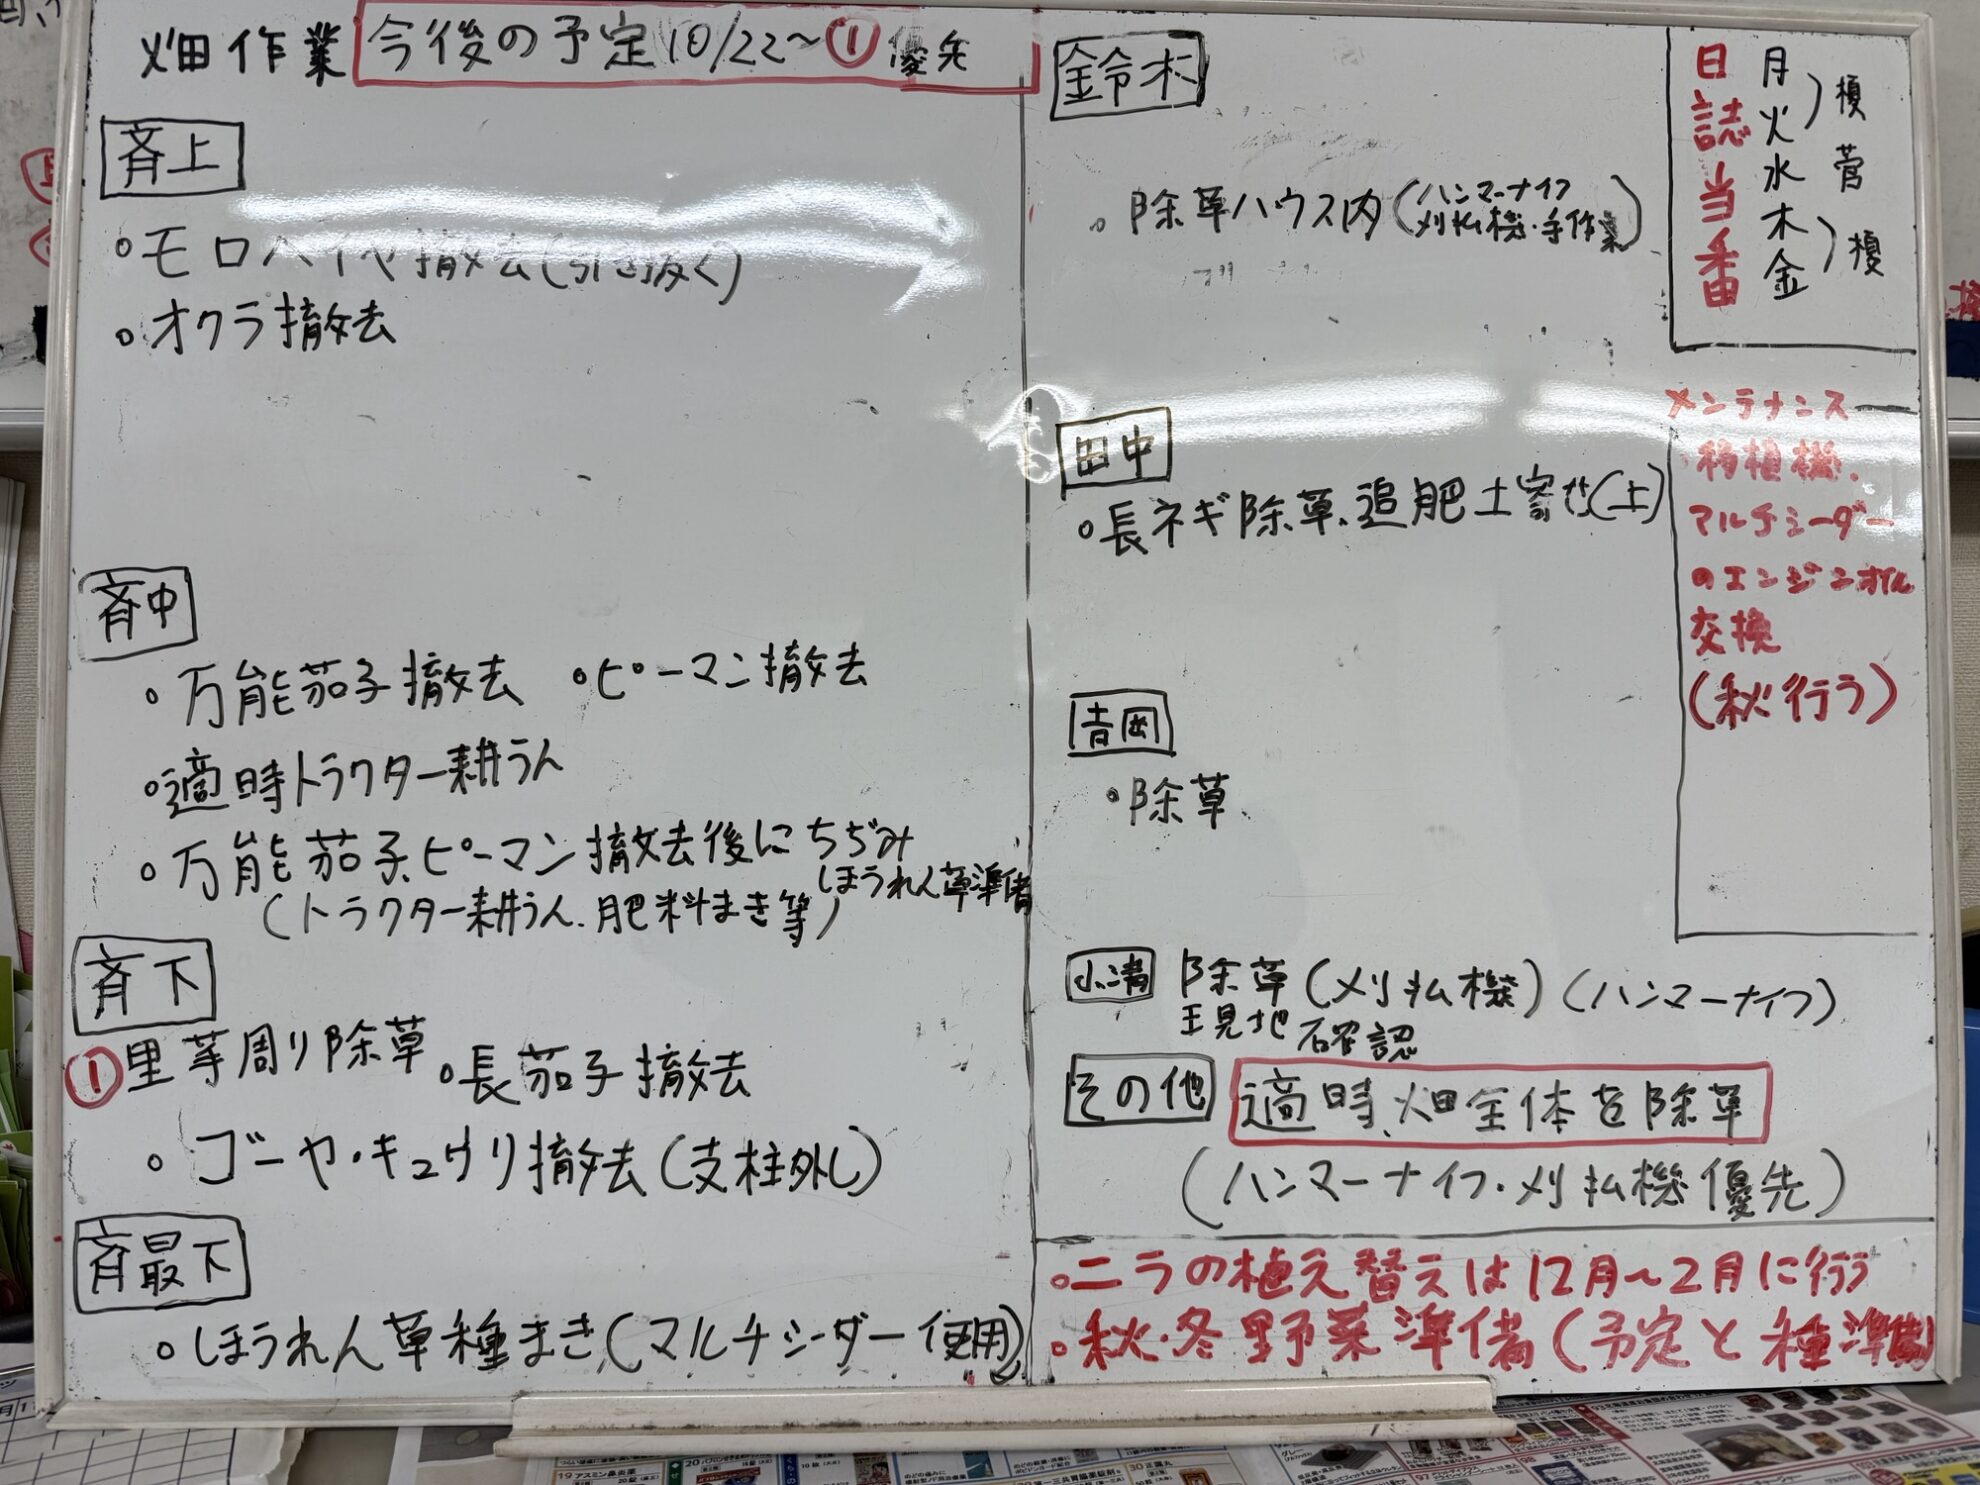 畑作業 今後の予定 10/22～ ① 優先
斉上
○モロヘイヤ撤去(引き抜く)
○オクラ撤去
斉中
○万能茄子撤去 ○ピーマン撤去
○適時トラクター耕うん
○万能茄子、ピーマン撤去後にちぢみ
ほうれん草準備
(トラクター耕うん、肥料まき等)
斉下
①里芋周り除草 ○長茄子撤去
○ゴーヤ・キュウリ撤去(支柱外し)
斉最下
○ほうれん草種まき(マルチシーダー使用)
鈴木
○除草ハウス内(ハンマーナイフ
刈払機・手作業)
田中
○長ネギ除草、追肥土寄せ(上)
吉岡
○除草
小溝 除草(刈払機)(ハンマーナイフ)
現地確認
その他 適時、畑全体を除草
(ハンマーナイフ・刈払機優先)
○ニラの植え替えは12月～2月に行う
○秋・冬野菜準備(予定と種準備)
日誌当番
月
火
)榎
水 菅
木
金
)榎
メンテナンス
移植機、
マルチシーダー
のエンジンオイル
交換
(秋行う)